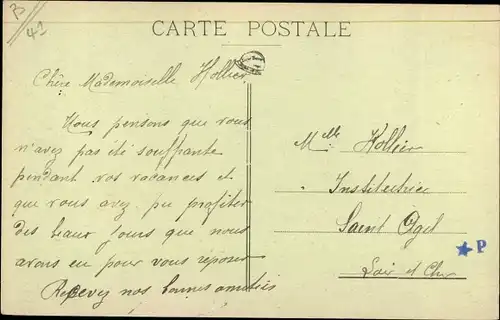 B
41
CARTE POSTALE
Chère Mademoiselle Hollier
Nous pensons que vous
n'avez pas été souffrante
pendant vos vacances et
que vous avez pu profiter
des beaux jours que nous
avons eu pour vous reposer
Recevez nos bonnes amitiés
Melle Hollier
Institutrice
Saint Agil
Loir et Cher
P